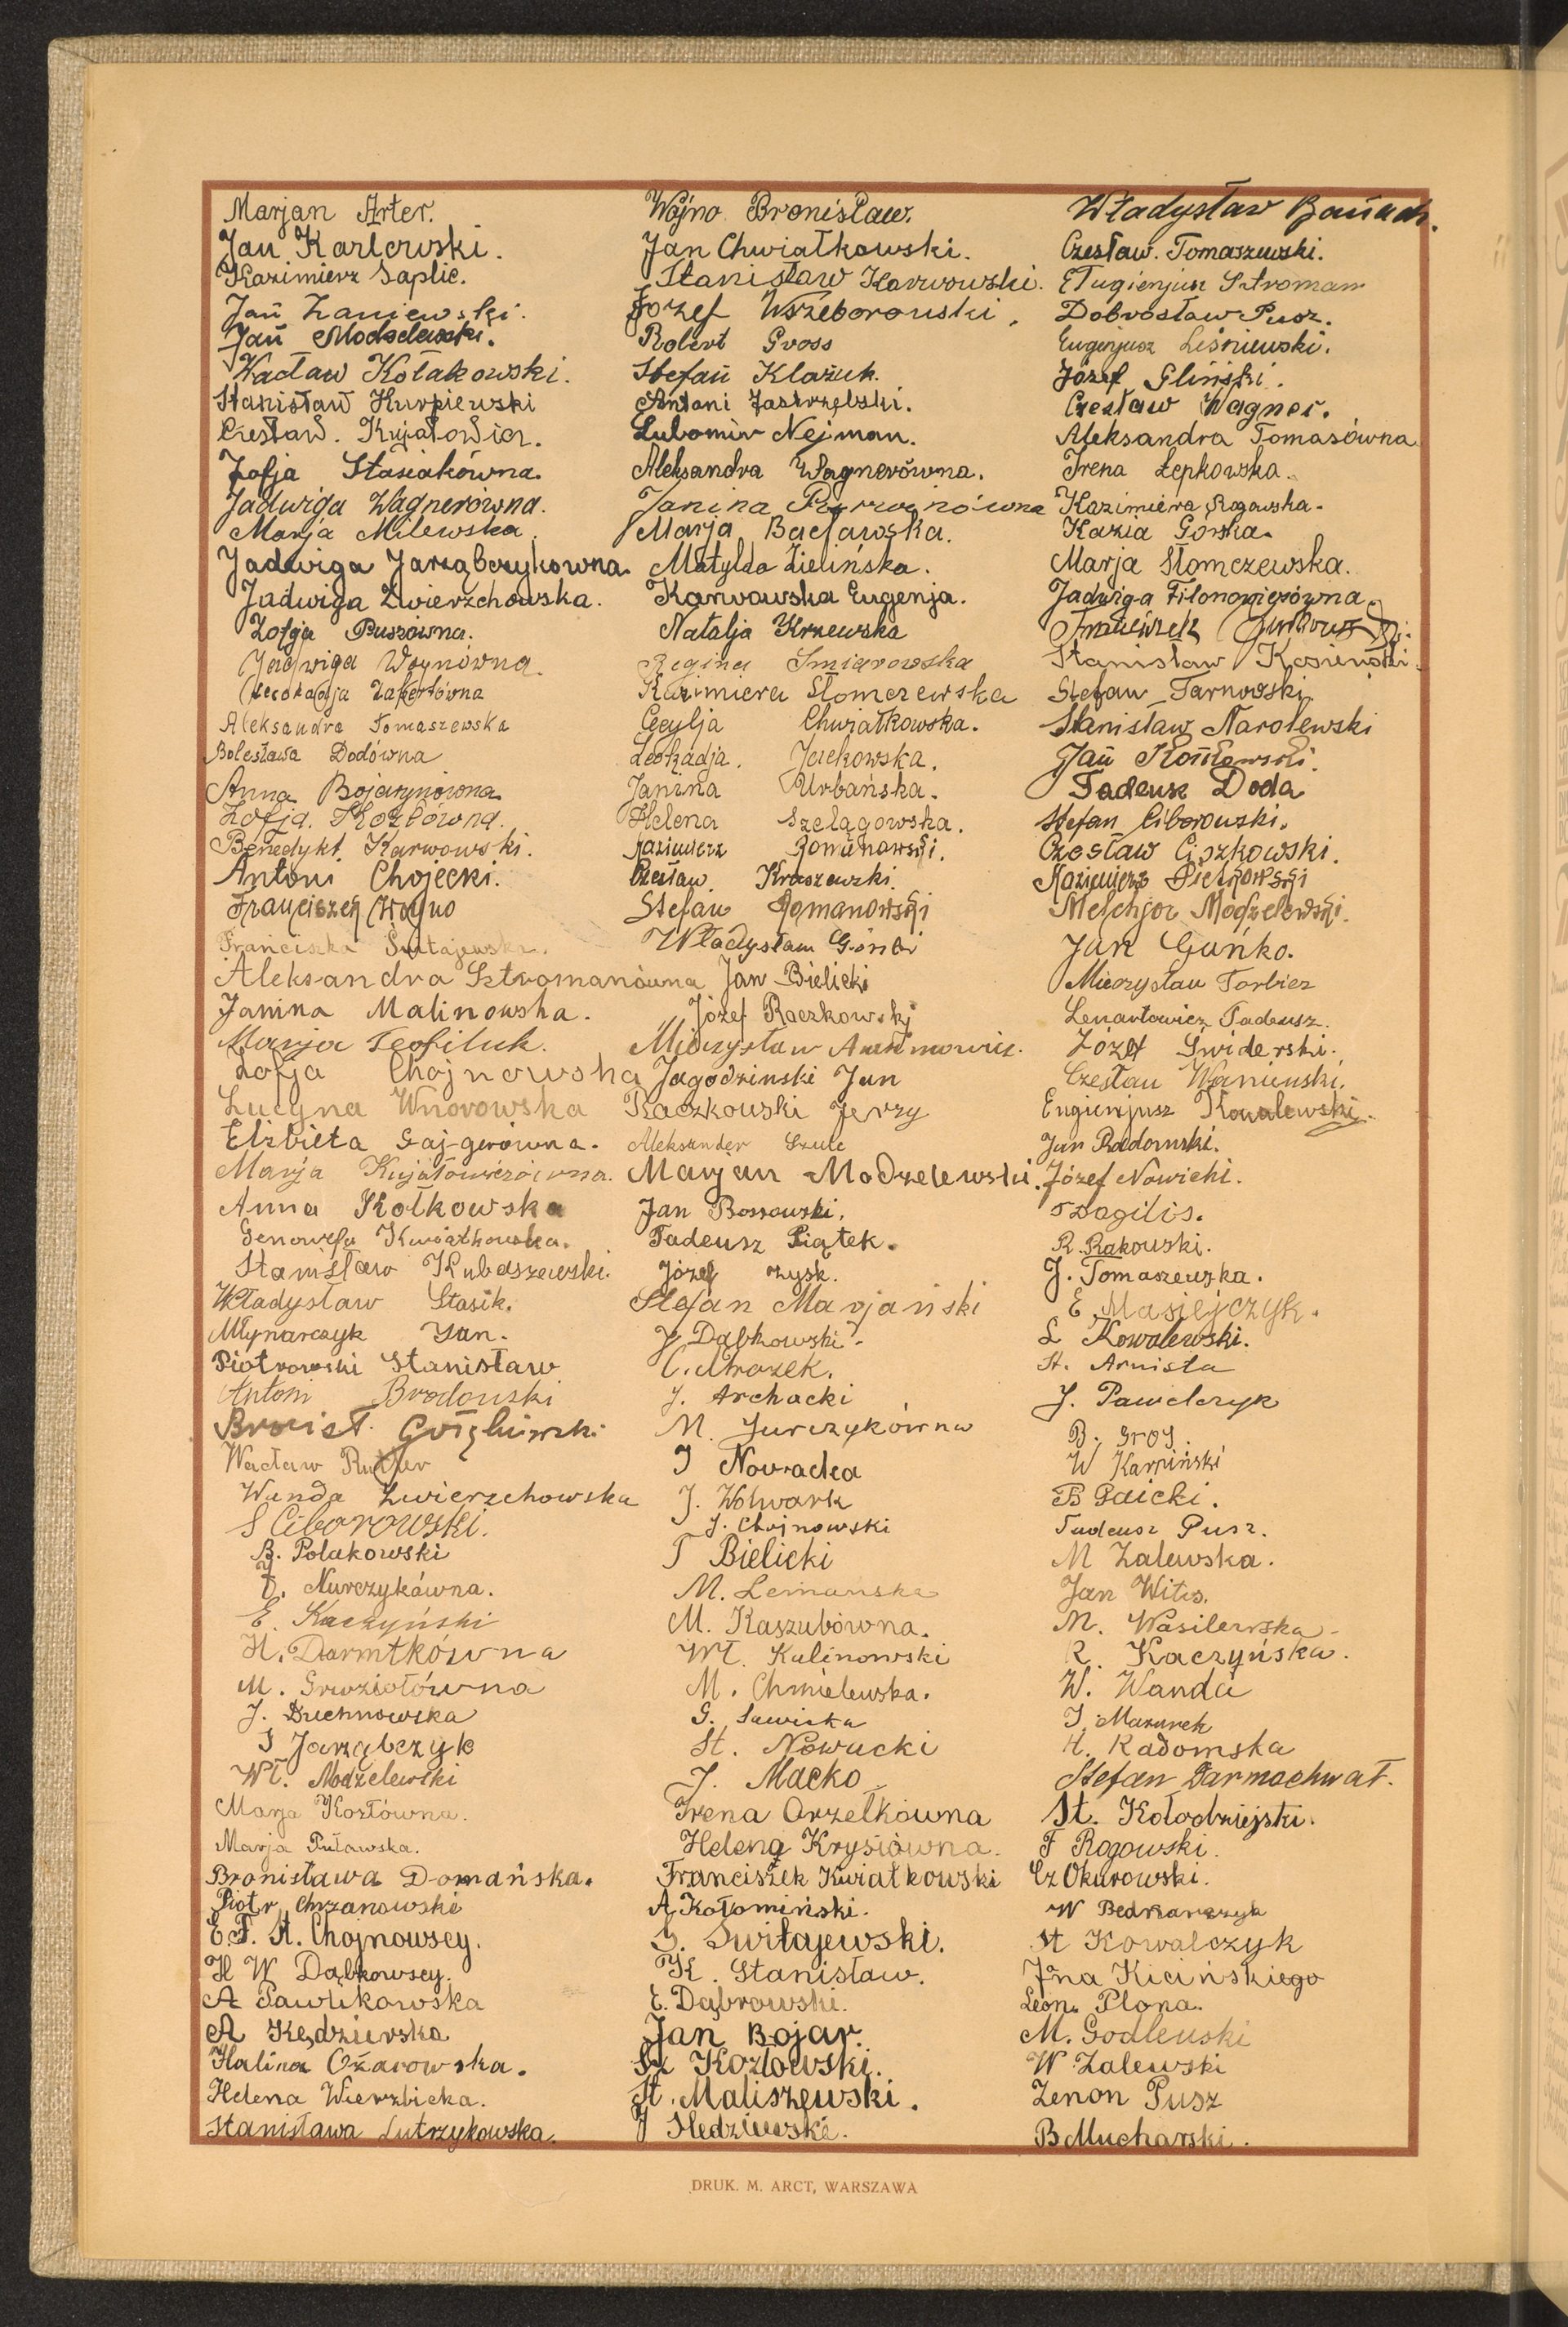 Marjan Arter.
Jan Karlowski.
Kazimierz Saplic.
Jan Zaniewski.
Jan Modzelewski.
Wacław Kołakowski.
Stanisław Kurpiewski
Czesław. Kujałowicz.
Zofja Stasiakówna.
Jadwiga Wagnerówna.
Marja Milewska.
Jadwiga Jarząbczykowna.
Jadwiga Zwierzchowska.
Zofja Puszówna.
Jadwiga Woynówna.
Zakertówna
Aleksandra Tomaszewska
Bolesława Dodówna
Anna Bojarynówna
Zofja. Kozłówna.
Benedykt Karwowski.
Antoni Chojecki.
Franciszek Woyno
Franciszka Świtajewska.
Aleksandra Sztromanówna
Janina Malinowska.
Marja Teofiluk.
Zofja Chojnowska
Lucyna Wnorowska
Elżbieta Gajgerówna.
Marja Kujałowiczówna.
Anna Kołkowska
Genowefa Kwiatkowska.
Stanisław Kubaszewski.
Władysław Stasik.
Młynarczyk Jan.
Piotrowski Stanisław
Antoni Brodowski
Bronisł.
Wacław
Wanda Zwierzchowska
S Ciborowski.
B. Polakowski
Nurczykówna.
E. Kaczyński
H. Darmtkówna
M. Grwziołówna
J. Duchnowska
J Jarząbczyk
Wł. Modzelewski
Marja Kozłówna.
Marja Puławska.
Bronisława Domańska.
Piotr Chrzanowski
E. F. St. Chojnowscy.
H W Dąbkowscy.
A Pawlikowska
A Kędzierska
Halina Ożarowska.
Helena Wierzbicka.
Stanisława Lutrzykowska.
Wojno Bronisław.
Jan Chwiałkowski.
Stanisław Karwowski.
Jozef Wszeborowski.
Robert Gross
Stefan Klażuk.
Antoni Jastrzębski.
Lubomir Nejman.
Aleksandra Wagnerówna.
Janina
Marja Bacławska.
Matylda Zielińska.
Karwowska Eugenja.
Natalja Krzewska
Regina Śmiarowska
Kazimiera Słomczewska
Cecylja Chwiałkowska.
Leokadja. Jackowska.
Janina Urbańska.
Helena Szelągowska.
Kazimierz Romanowski.
Czesław. Kraszewski.
Stefan Romanowski
Władysław Górski
Jan Bielicki
Józef Raczkowski
Mieczysław
Jagodzinski Jan
Raczkowski Jerzy
Aleksander Szulc
Marjan Modzelewski.
Jan Bossowski.
Tadeusz Piątek.
Józef Zysk.
Stefan Marjański
J Dąbkowski.
C. Mrozek.
J. Archacki
M. Jurczykówna
J Nowacka
J. Wolwark
J. Chojnowski
T Bielicki
M. Lemanska
M. Kaszubówna.
Wł. Kalinowski
M. Chmielewska.
G. Sawicka
St. Nowucki
J. Macko
Irena Orzełkówna
Helena Krysiówna.
Franciszek Kwiatkowski
A. Kołomiński.
S. Świtajewski.
K. Stanisław.
E. Dąbrowski.
Jan Bojar.
Kozłowski.
St. Maliszewski.
J Śledziewski.
Władysław Banach.
Czesław. Tomaszewski.
Eługienjusz Sztroman
Dobrosław Pusz.
Eugenjusz Leśniewski.
Józef Gliński.
Czesław Wagner.
Aleksandra Tomasówna
Irena Łepkowska.
Kazimiera Rogowska.
Kazia Gorska.
Marja Słomczewska.
Jadwiga Filonowiczówna.
Franciszek
Stanisław Kosiewski.
Stefan Tarnowski
Stanisław Narolewski
Jan Konkowski.
Tadeusz Doda
Stefan Ciborowski.
Czesław Ciszkowski.
Kazimierz Pietrowski
Melchjor Modzelewski.
Jan Gańko.
Mieczysław Torbicz
Lenartowicz Tadeusz.
Józef Świderski.
Czesław Waniewski.
Eugienjusz Kowalewski.
Jan Radomski.
Józef Nowicki.
T Dogilis.
R. Rakowski.
J. Tomaszewska.
E. Masiejczyk.
L Kowalewski.
St. Arnista
J. Pawelczyk
B. Troj.
W Karpiński
B Gaicki.
Tadeusz Pusz.
M Zalewska.
Jan Witos.
M. Wasilewska
R. Kaczyńska.
W. Wanda
J Mazurek
H. Radomska
Stefan Darmochwał.
St. Kołodziejski.
F Rogowski.
Cz Okurowski.
W Bednarczyk
St Kowalczyk
Jna Kicińskiego
Leon. Plona.
M. Godlewski
W Zalewski
Zenon Pusz
B Mucharski.
DRUK. M. ARCT, WARSZAWA